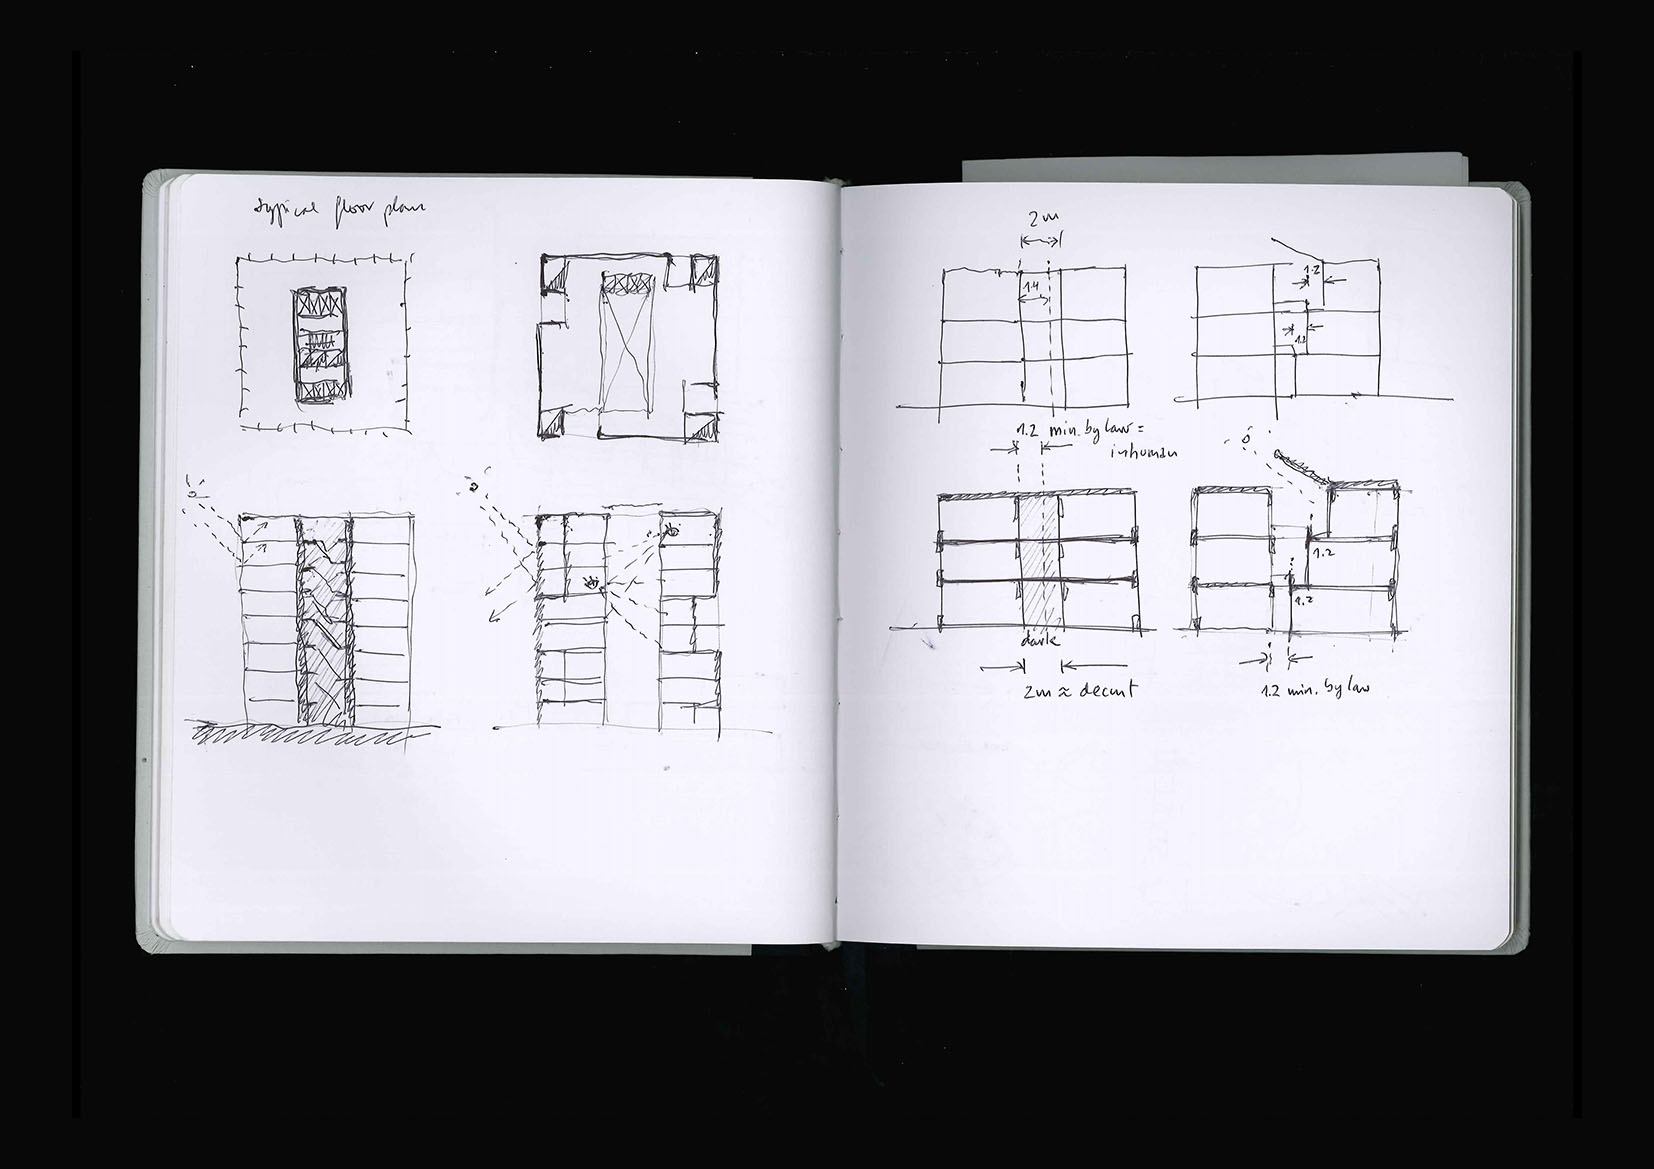 typical floor plan
2m
1.4
1.2
1.2
1.2 min. by law =
inhuman
1.2
1.2
dark
2m ≈ decent
1.2 min. by law